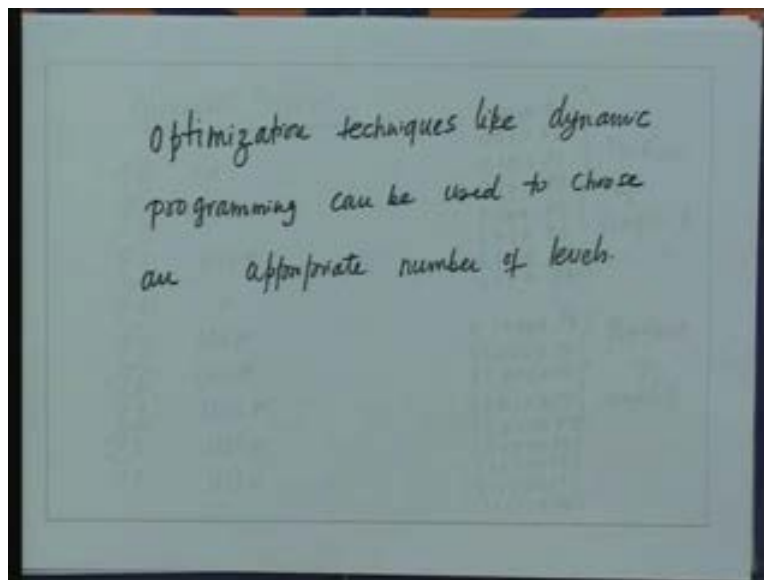 Optimization techniques like dynamic
programming can be used to choose
an appropriate number of levels.